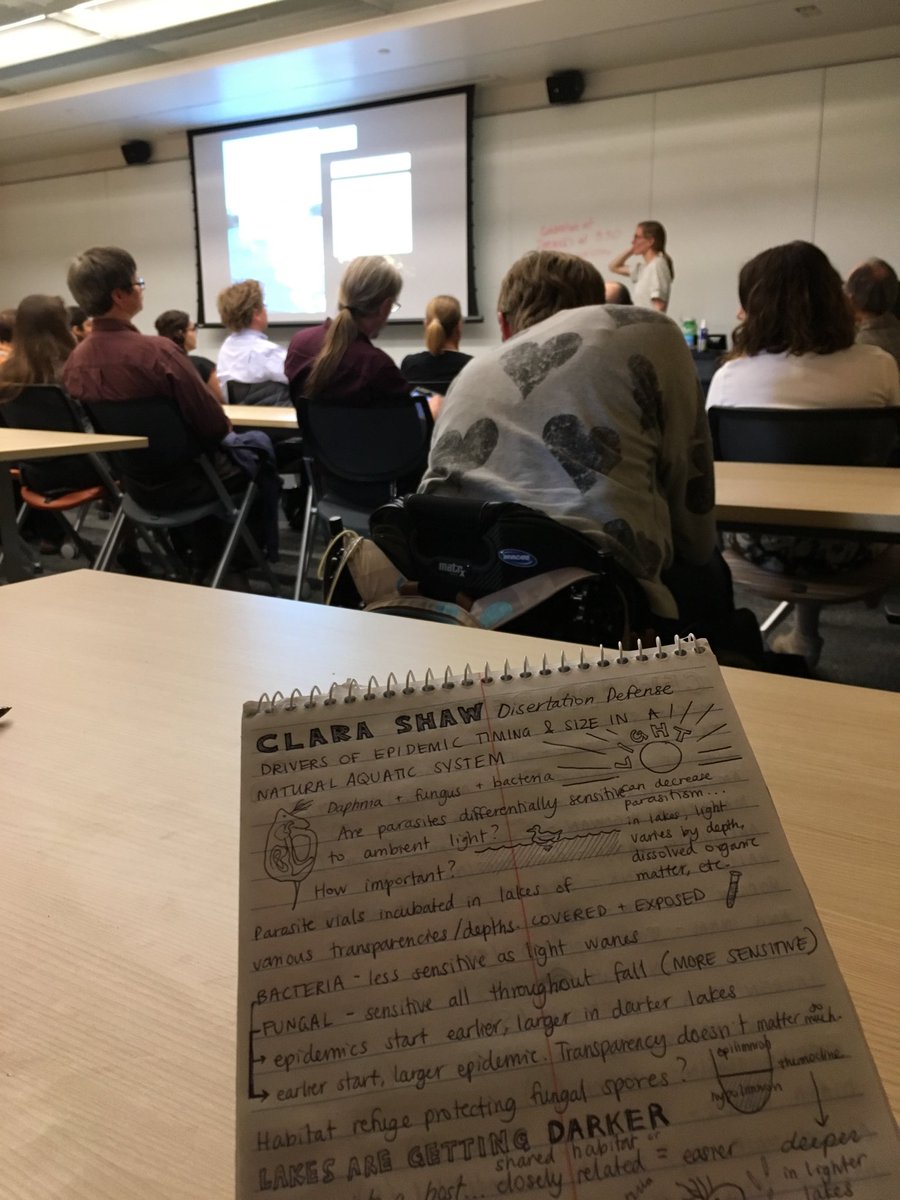 matrx
INVACARE
CLARA SHAW Disertation Defense
DRIVERS OF EPIDEMIC TIMING & SIZE IN A
NATURAL AQUATIC SYSTEM
LIGHT
can decrease
parasitism...
in lakes, light
varies by depth,
dissolved organic
matter, etc.
Daphnia + fungus + bacteria
Are parasites differentially sensitive
to ambient light?
How important?
Parasite vials incubated in lakes of
various transparencies/depths. COVERED + EXPOSED
BACTERIA - less sensitive as light wanes
FUNGAL - sensitive all throughout fall (MORE SENSITIVE)
→ epidemics start earlier, larger in darker lakes
→ earlier start, larger epidemic. Transparency doesn't matter so much.
Habitat refuge protecting fungal spores?
epilimnion
hypolimnion
thermocline
↓
deeper
in lighter
lakes
LAKES ARE GETTING DARKER
shared habitat or
closely related = easier
a host...